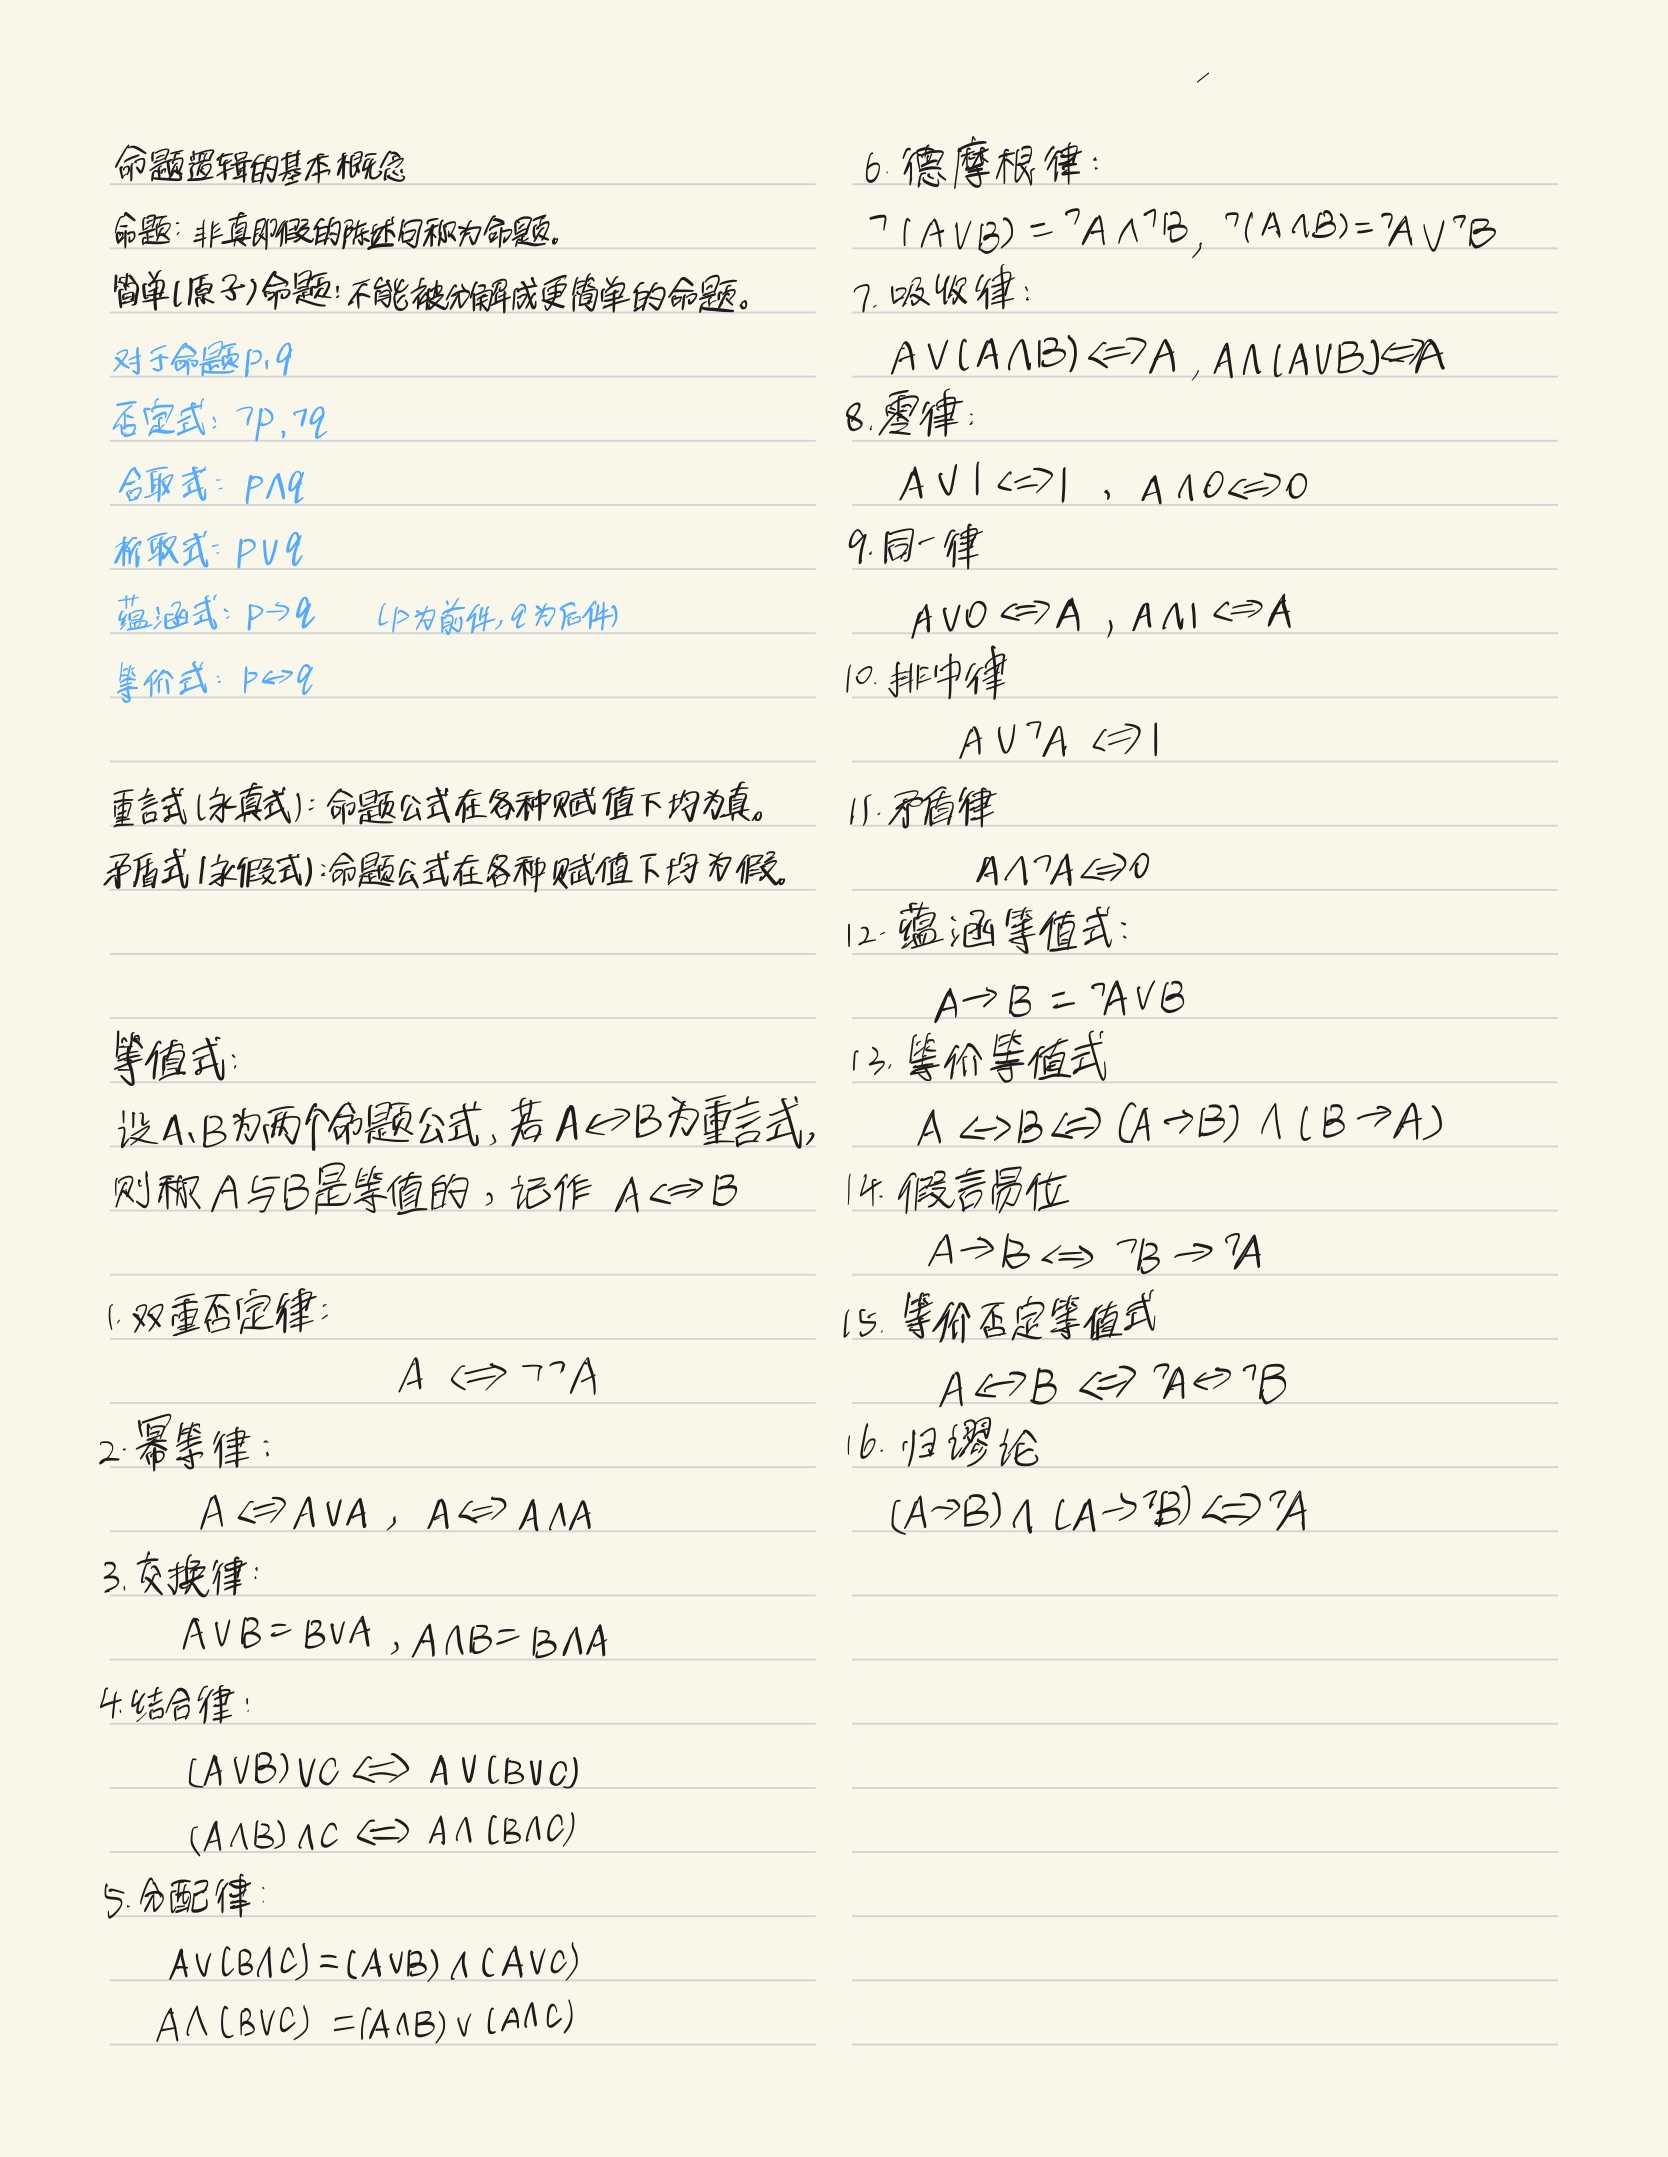 命题逻辑的基本概念
命题：非真即假的陈述句称为命题。
简单(原子)命题：不能被分解成更简单的命题。
对于命题p、q
否定式：¬p，¬q
合取式：p∧q
析取式：p∨q
蕴涵式：p→q (p为前件，q为后件)
等价式：p↔q
重言式(永真式)：命题公式在各种赋值下均为真。
矛盾式(永假式)：命题公式在各种赋值下均为假。
等值式：
设A、B为两个命题公式，若A↔B为重言式，
则称A与B是等值的，记作 A⇔B
1. 双重否定律：
A ⇔ ¬¬A
2. 幂等律：
A⇔A∨A，A⇔A∧A
3. 交换律：
A∨B=B∨A，A∧B=B∧A
4. 结合律：
(A∨B)∨C ⇔ A∨(B∨C)
(A∧B)∧C ⇔ A∧(B∧C)
5. 分配律：
A∨(B∧C)=(A∨B)∧(A∨C)
A∧(B∨C)=(A∧B)∨(A∧C)
6. 德摩根律：
¬(A∨B)=¬A∧¬B，¬(A∧B)=¬A∨¬B
7. 吸收律：
A∨(A∧B)⇔A，A∧(A∨B)⇔A
8. 零律：
A∨1⇔1，A∧0⇔0
9. 同一律
A∨0⇔A，A∧1⇔A
10. 排中律
A∨¬A⇔1
11. 矛盾律
A∧¬A⇔0
12. 蕴涵等值式：
A→B=¬A∨B
13. 等价等值式
A↔B⇔(A→B)∧(B→A)
14. 假言易位
A→B⇔¬B→¬A
15. 等价否定等值式
A↔B⇔¬A↔¬B
16. 归谬论
(A→B)∧(A→¬B)⇔¬A